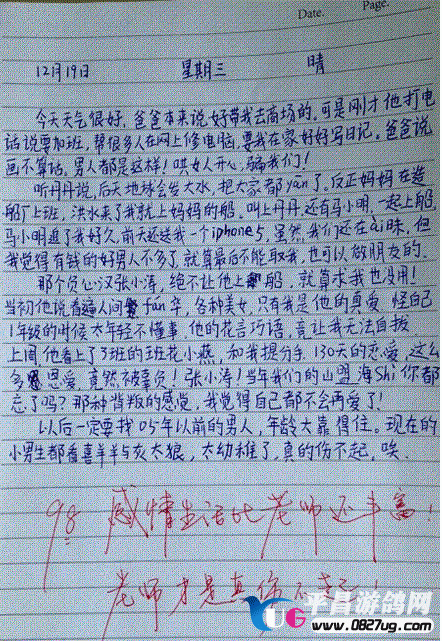 Date.
Page.
12月19日 星期三 晴
今天天气很好,爸爸本来说好带我去商场的,可是刚才他打电
话说要加班,帮很多人在网上修电脑,要我在家好好写日记。爸爸说
画不算话,男人都是这样!哄女人开心,骗我们!
听丹丹说,后天地球会发大水,把大家都yān了。反正妈妈在造
船厂上班,洪水来了我就上妈妈的船。叫上丹丹,还有马小明,一起上船,
马小明追了我好久,前天还送我一个iphone5,虽然我们还在ài昧,但
我觉得有钱的好男人不多了,就算最后不能取我,也可以做朋友的。
那个负心汉张小涛,绝不让他上船,就算求我也没用!
当初他说看遍人间fán华,各种美女,只有我是他的真爱,怪自己
1年级的时候太年轻不懂事,他的花言巧语,竟让我无法自拔
上周他看上了3班的班花小燕,和我提分手,130天的恋爱,这么
多恩爱,竟然被辜负!张小涛!当年我们的山盟海Shi你都
忘了吗?那种背叛的感觉,我觉得自己都不会再爱了!
以后一定要找05年以前的男人,年龄大靠得住。现在的
小男生都看喜羊羊与灰太狼,太幼稚了,真的伤不起,唉。
98 感情生活比老师还丰富!
老师才是真伤不起!
UG 平昌游鸽网
www.0827ug.com